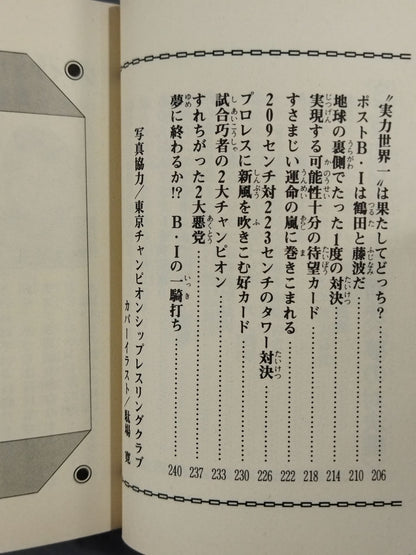 “実力世界一”は果たしてどっち？……206
ポストB・Iは鶴田と藤波だ……210
地球の裏側でたった1度の対決……214
実現する可能性十分の待望カード……218
すさまじい運命の嵐に巻きこまれる……222
209センチ対223センチのタワー対決……226
プロレスに新風を吹きこむ好カード……230
試合巧者の2大チャンピオン……233
すれちがった2大悪党……237
夢に終わるか!? B・Iの一騎打ち……240
写真協力／東京チャンピオンシップレスリングクラブ
カバーイラスト／駄場 寛